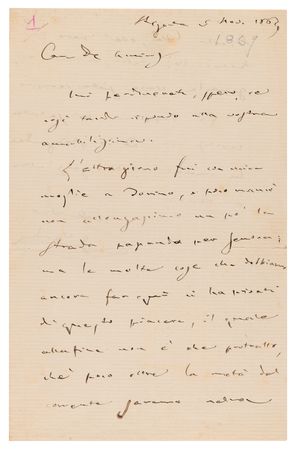 1
5 Nov. 1869
1869
Caro De Amicis
Mi perdonerete, spero, se
così tardo rispondo alla vostra
amabilissima.
L'altro giorno fui con mia
moglie a Torino, e poco mancò
non allungassimo un po' la
strada passando per Genova;
ma le molte cose che dobbiamo
ancora far quì ci ha privati
di questo piacere, il quale
alla fine non è che protratto,
chè poco oltre la metà del
corrente saremo